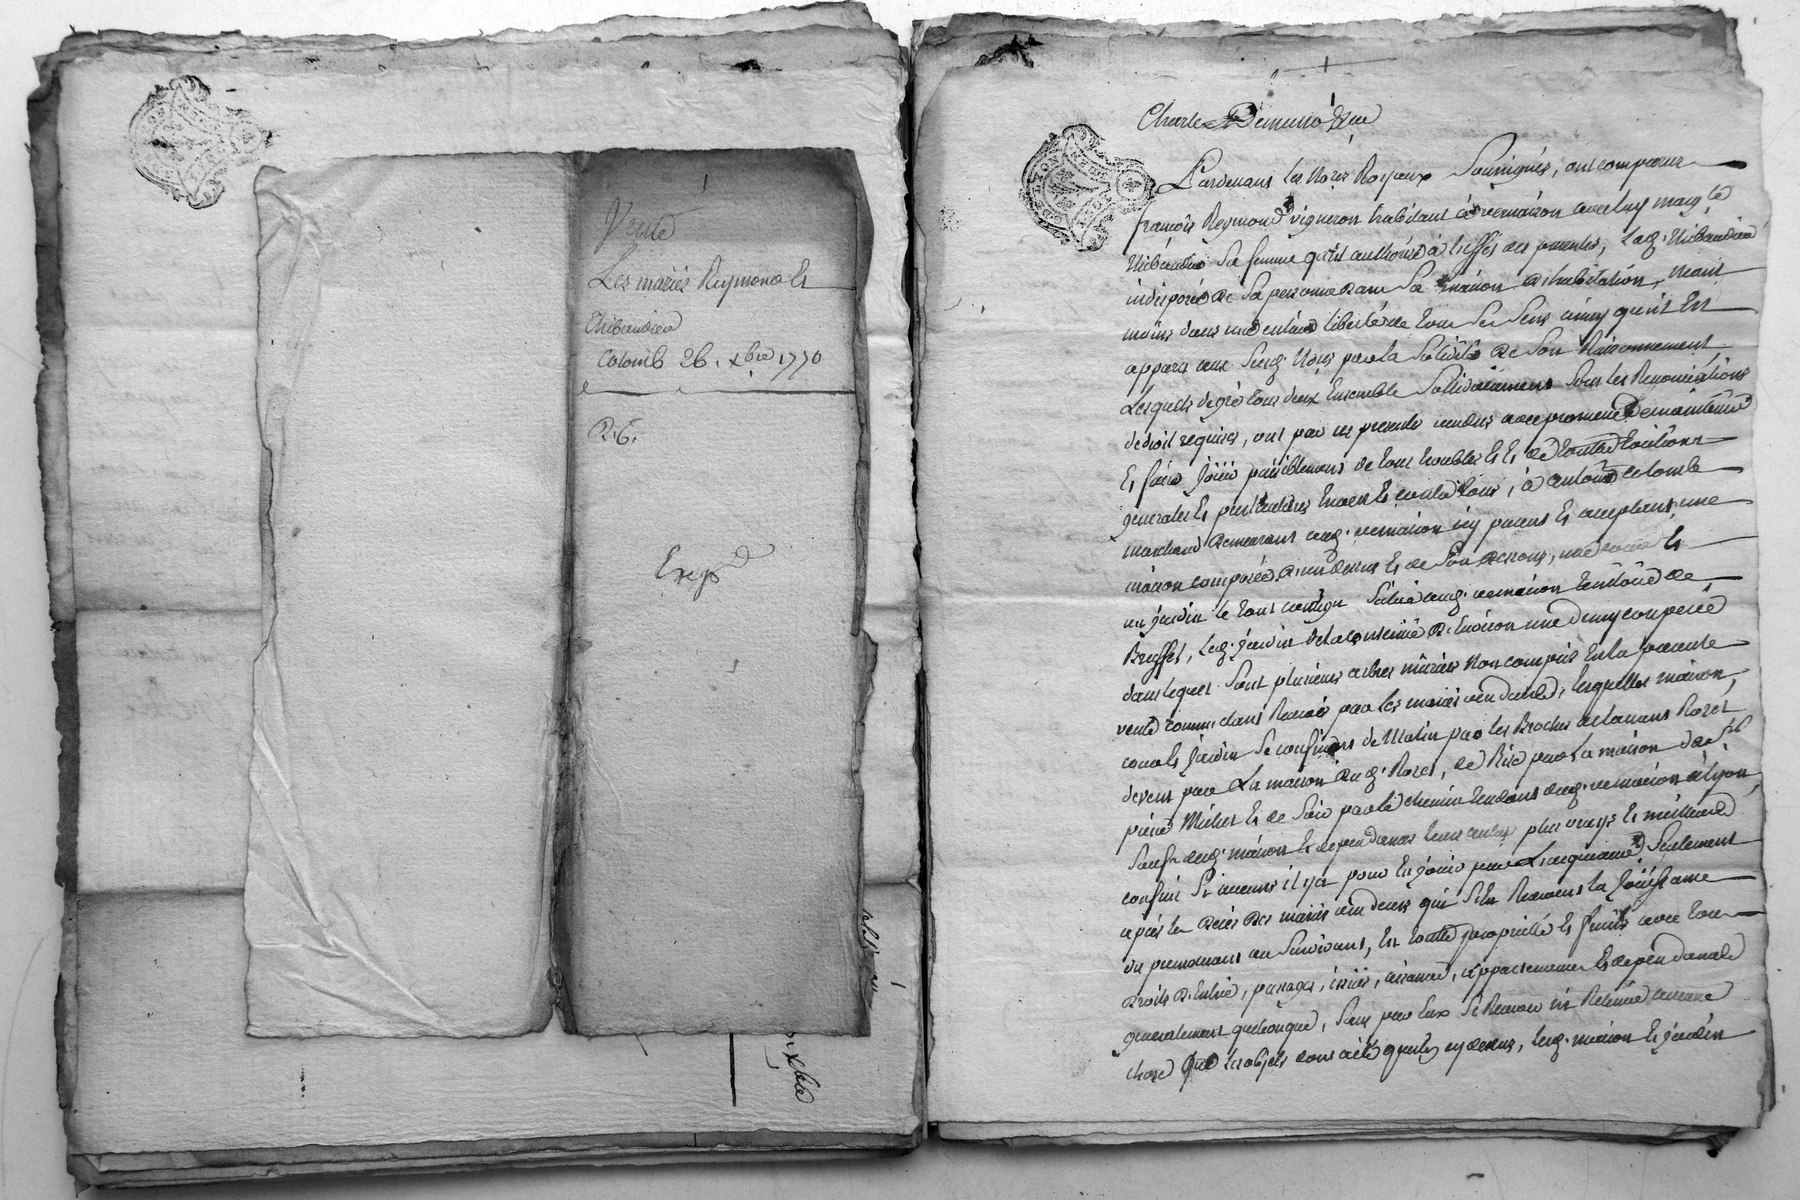 Vente
Les mariés Reymond et
Thibaudier
Colomb 26. xbre 1770
R. 6.
Exp.
xbre
GEN DE LYON
Pardevant les Nores Royaux Soussignés, ont comparu
francois Reymond vigneron habitant à vernaison avec luy marg.te
Thibaudier Sa femme qu'il authorise à l'effet des presentes, lad. Thibaudier
indisposée de Sa personne dans Sa maison d'habitation, neant
moins dans une entiere liberté de tous Ses Sens ainsy qu'il Est
apparu aux Susd. Nores par la Solidité de Son Raisonnement
Lesquels de gré tous deux Ensemble Solidairement Sous les Renonciations
de droit requises, ont par ces presentes vendus avec promesse de maintenir
Et faire Jouir paisiblement de tous troubles Et de toutes Evictions
generales Et particulieres Envers Et contre tous, à antoine Colomb
marchand demeurant aud. vernaison icy present Et acceptant, une
maison composée d'un dessus Et de Son dessous, une cour Et
un jardin le tout contigu Situé aud. vernaison territoire de
Buffet, led. jardin de la contenue d'Environ une demy couperée
dans lequel Sont plusieurs arbres muriers Non compris En la presente
vente comme étant Reservés par les mariés vendeurs, lesquelles maison,
cour Et Jardin Se confinent de Matin par les Broches de laurent Rozet
de vent par La maison dud. Rozet, de Bize par La maison de Sr
pierre Michet Et de Soir par le chemin tendant dud. vernaison à Lyon,
Sauf desd. maison Et dependances leurs autres plus vrays Et meilleurs
confins Si aucuns il y a pour En jouir par L'acquereur Seulement
après le déces des mariés vendeurs qui S'En Reservent la Jouissance
du premourant au Survivant, En toute proprieté Et fruits avec tous
droits d'Entrée, passages, issües, aisances, appartenances Et dependances
generalement quelconques, Sans par Eux Se Reserver ni Retenir aucune
chose que les objets dont a été parlé cy dessus, lesd. maison Et jardin